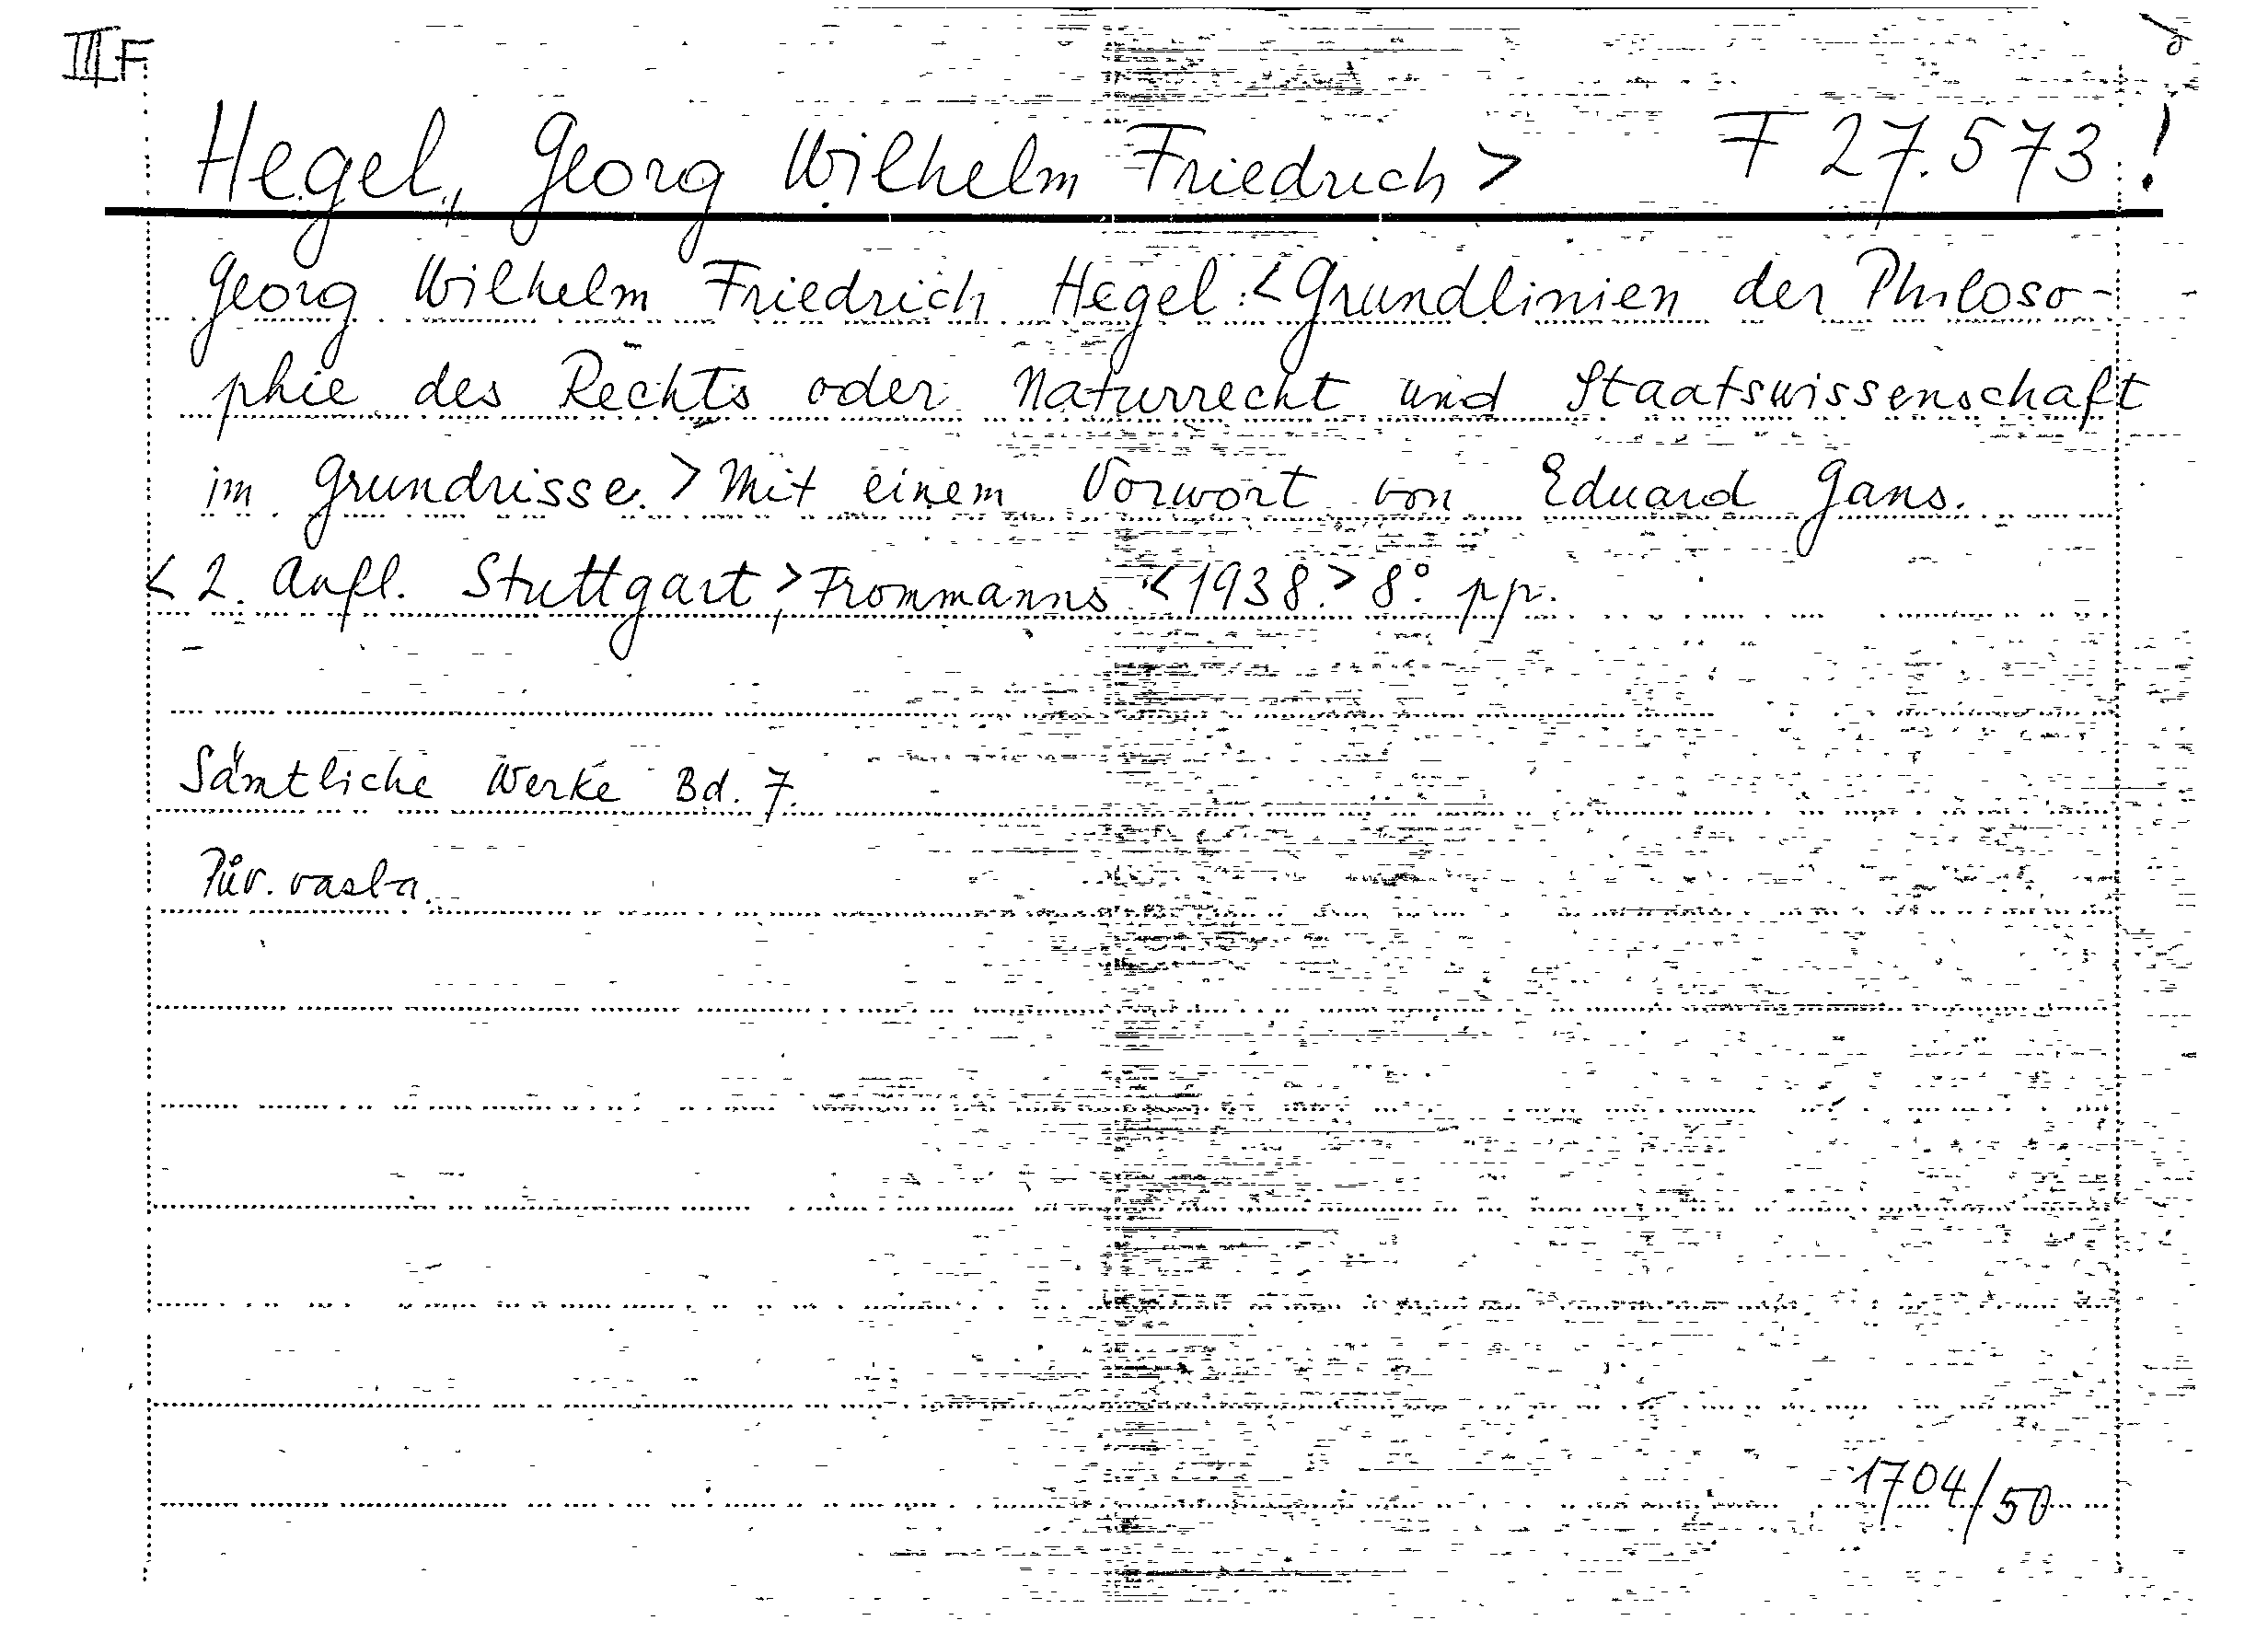 III F
Hegel, Georg Wilhelm Friedrich > F 27.573 !
Georg Wilhelm Friedrich Hegel: < Grundlinien der Philoso-
phie des Rechts oder Naturrecht und Staatswissenschaft
im Grundrisse. > Mit einem Vorwort von Eduard Gans.
< 2. Aufl. Stuttgart >, Frommanns < 1938. > 8° pp.
Sämtliche Werke Bd. 7.
Pův. vazba.
1704/50